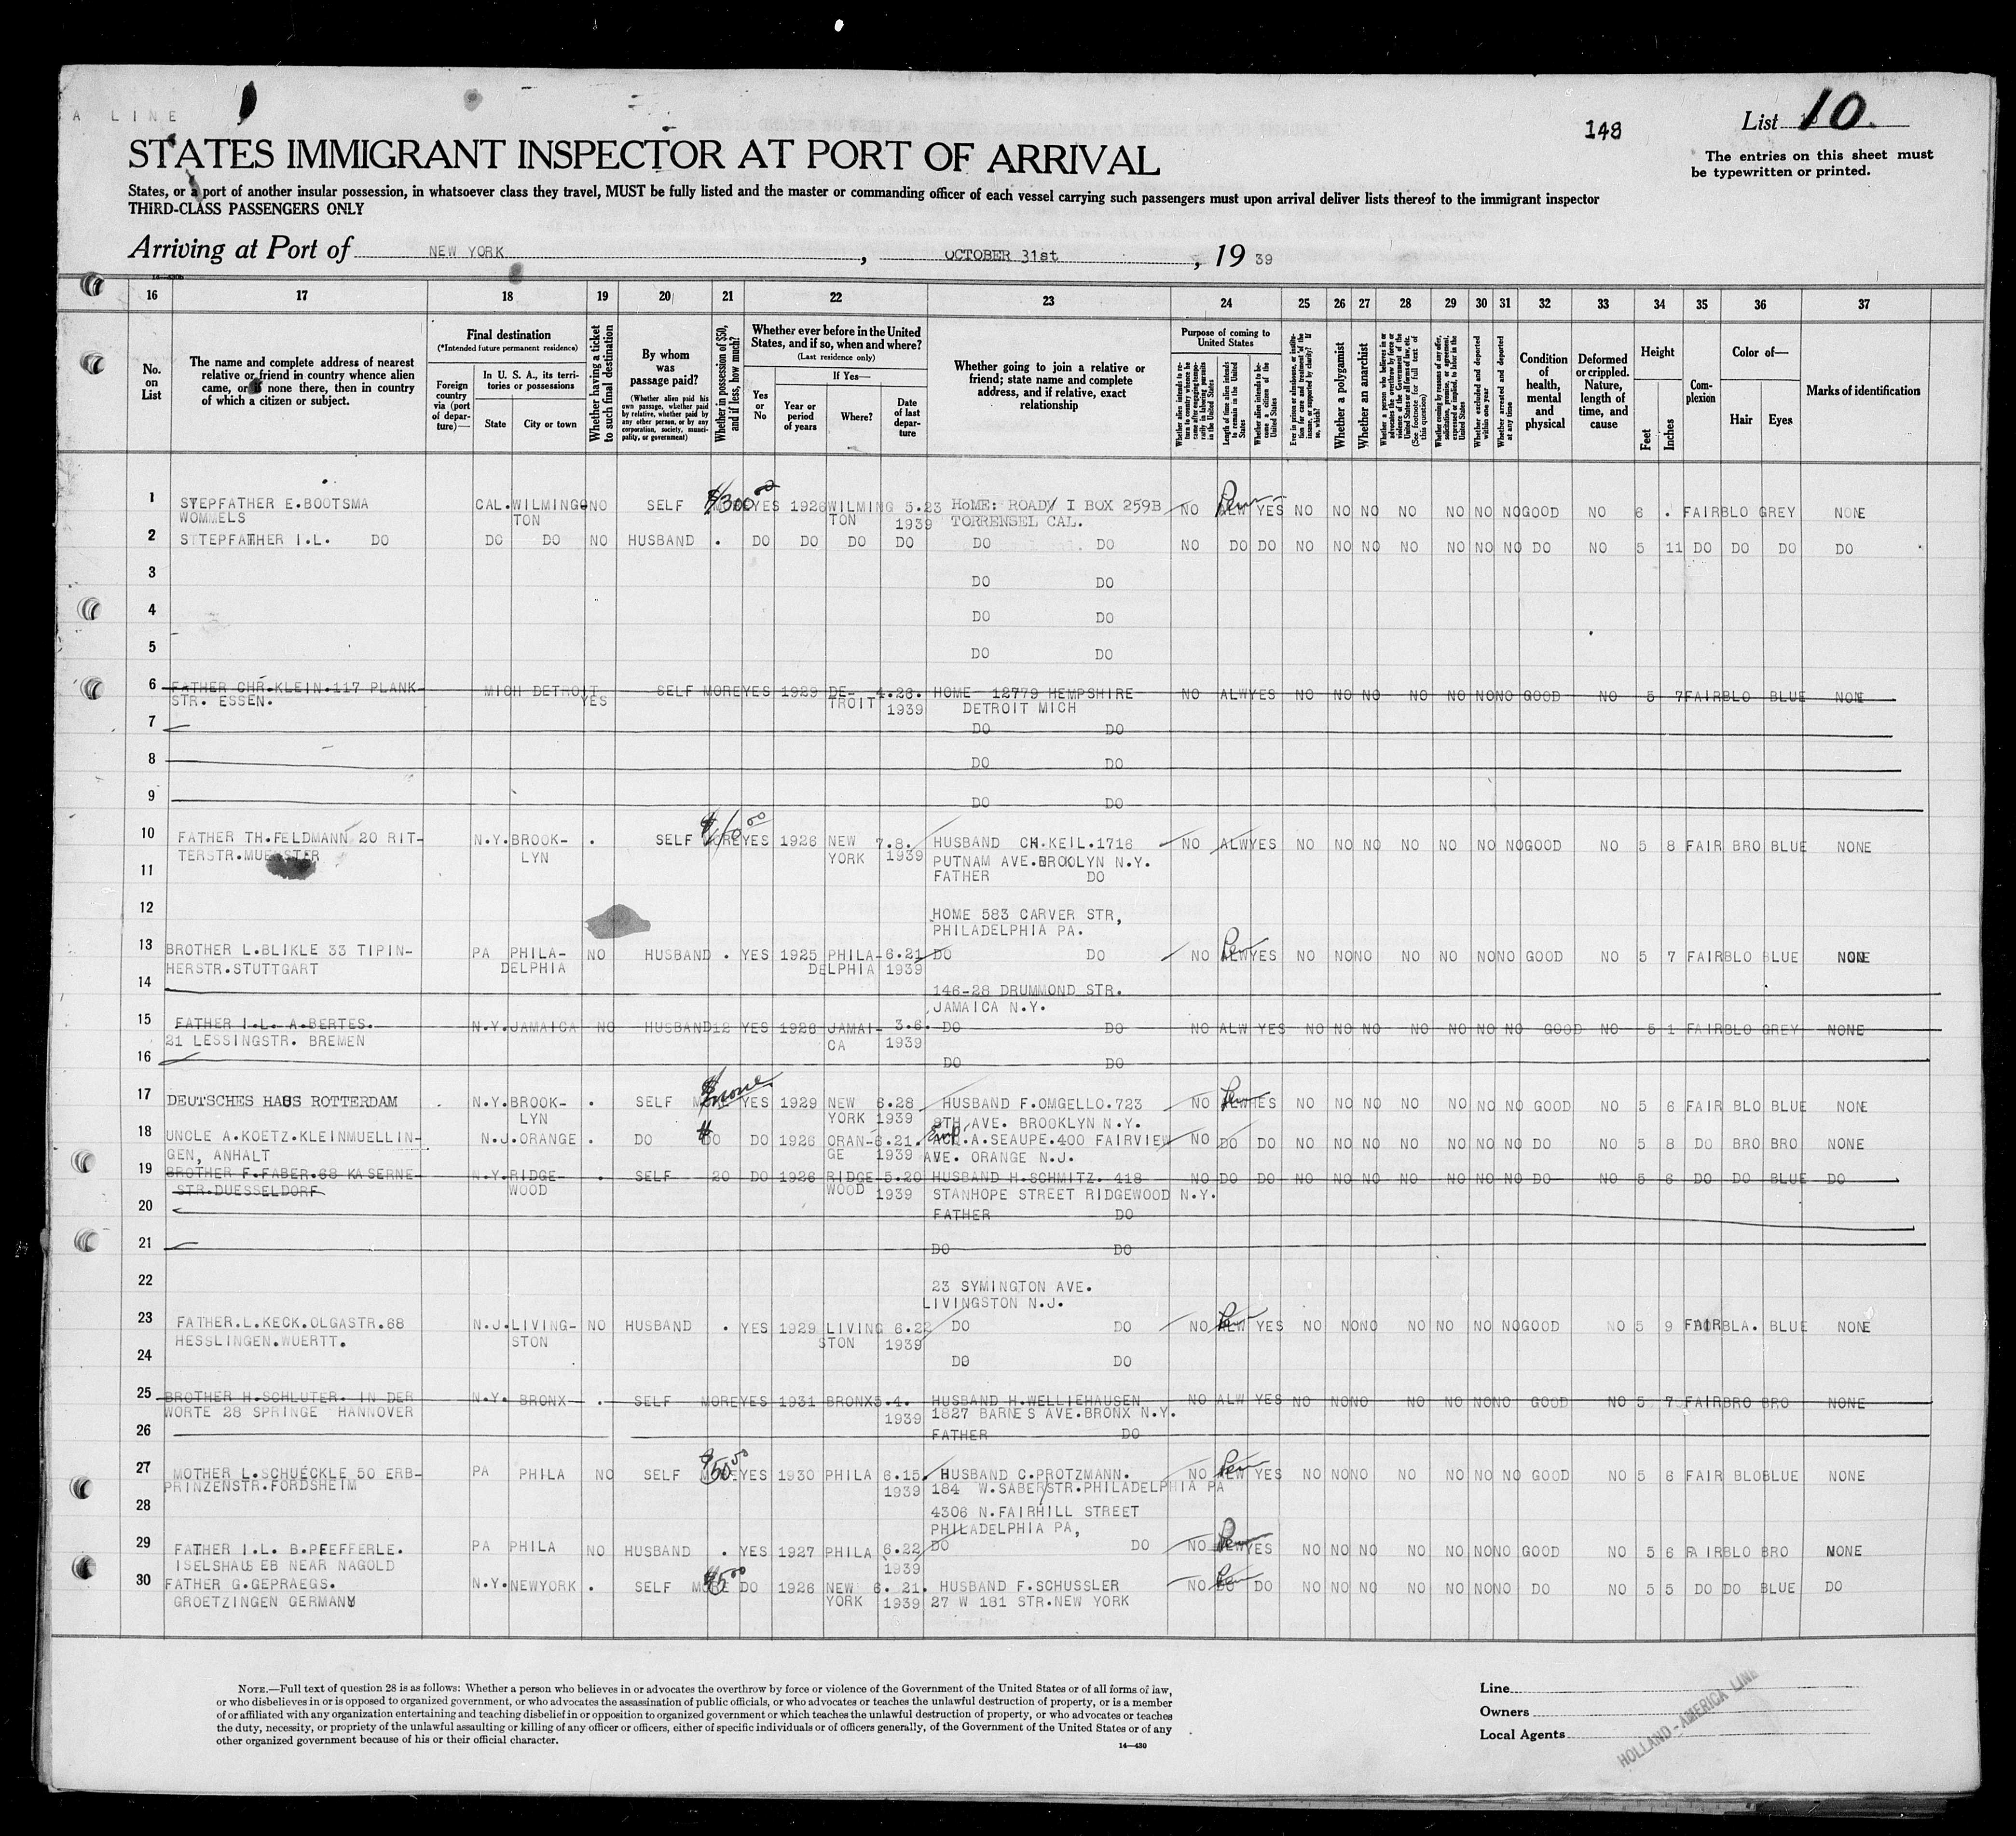 A LINE
148
List 10.
The entries on this sheet must
be typewritten or printed.
STATES IMMIGRANT INSPECTOR AT PORT OF ARRIVAL
States, or a port of another insular possession, in whatsoever class they travel, MUST be fully listed and the master or commanding officer of each vessel carrying such passengers must upon arrival deliver lists thereof to the immigrant inspector
THIRD-CLASS PASSENGERS ONLY
Arriving at Port of NEW YORK , OCTOBER 31st , 19 39
16 17 18 19 20 21 22 23 24 25 26 27 28 29 30 31 32 33 34 35 36 37
No. on List
The name and complete address of nearest relative or friend in country whence alien came, or if none there, then in country of which a citizen or subject.
Final destination
(*Intended future permanent residence)
Foreign country via (port of departure)—
In U. S. A., its territories or possessions
State
City or town
Whether having a ticket to such final destination
By whom was passage paid?
(Whether alien paid his own passage, whether paid by relative, whether paid by any other person, or by any corporation, society, municipality, or government)
Whether in possession of $50, and if less, how much?
Whether ever before in the United States, and if so, when and where?
(Last residence only)
Yes or No
If Yes—
Year or period of years
Where?
Date of last departure
Whether going to join a relative or friend; state name and complete address, and if relative, exact relationship
Purpose of coming to United States
Whether alien intends to return to country whence he came after engaging temporarily in laboring pursuits in the United States
Length of time alien intends to remain in the United States
Whether alien intends to become a citizen of the United States
Ever in prison or almshouse, or institution for care and treatment of the insane, or supported by charity? If so, which?
Whether a polygamist
Whether an anarchist
Whether a person who believes in or advocates the overthrow by force or violence of the Government of the United States or all forms of law, etc. (See footnote for full text of this question)
Whether coming by reasons of any offer, solicitation, promise, or agreement, expressed or implied, to labor in the United States
Whether excluded and deported within one year
Whether arrested and deported at any time
Condition of health, mental and physical
Deformed or crippled. Nature, length of time, and cause
Height
Feet
Inches
Complexion
Color of—
Hair
Eyes
Marks of identification
1 STEPFATHER E.BOOTSMA CAL. WILMINGO NO SELF $300 00 YES 1926 WILMING 5.23 HOME: ROAD I BOX 259B NO Perm YES NO NO NO NO NO NO NO GOOD NO 6 . FAIR BLO GREY NONE
WOMMELS TON TON 1939 TORRENSEL CAL.
2 STTEPFATHER I.L. DO DO DO NO HUSBAND . DO DO DO DO DO DO NO DO DO NO NO NO NO NO NO NO DO NO 5 11 DO DO DO DO
3 DO DO
4 DO DO
5 DO DO
6 FATHER CHR.KLEIN.117 PLANK- MICH DETROIT YES SELF MORE YES 1929 DE- 4.26. HOME 12779 HEMPSHIRE NO ALW YES NO NO NO NO NO NO NO GOOD NO 5 7 FAIR BLO BLUE NONE
STR. ESSEN. TROIT 1939 DETROIT MICH
7 DO DO
8 DO DO
9 DO DO
10 FATHER TH.FELDMANN 20 RIT- N.Y. BROOK- . SELF MORE YES 1926 NEW 7.8. HUSBAND CH.KEIL.1716 NO ALW YES NO NO NO NO NO NO NO GOOD NO 5 8 FAIR BRO BLUE NONE
TERSTR.MUENSTER LYN YORK 1939 PUTNAM AVE.BROOLYN N.Y.
11 FATHER DO
12 HOME 583 CARVER STR,
PHILADELPHIA PA.
13 BROTHER L.BLIKLE 33 TIPIN- PA PHILA- NO HUSBAND . YES 1925 PHILA- 6.21 DO DO NO Perm YES NO NO NO NO NO NO NO GOOD NO 5 7 FAIR BLO BLUE NONE
HERSTR.STUTTGART DELPHIA DELPHIA 1939
14 146-28 DRUMMOND STR.
JAMAICA N.Y.
15 FATHER I.L. A.BERTES. N.Y. JAMAICA NO HUSBAND 12 YES 1926 JAMAI- 3.6. DO DO NO ALW YES NO NO NO NO NO NO NO GOOD NO 5 1 FAIR BLO GREY NONE
21 LESSINGSTR. BREMEN CA 1939
16 DO DO
17 DEUTSCHES HAUS ROTTERDAM N.Y. BROOK- . SELF $ none YES 1929 NEW 6.28 HUSBAND F.OMGELLO.723 NO Perm YES NO NO NO NO NO NO NO GOOD NO 5 6 FAIR BLO BLUE NONE
LYN YORK 1939 9TH AVE. BROOKLYN N.Y.
18 UNCLE A.KOETZ.KLEINMUELLIN- N.J. ORANGE . DO DO DO 1926 ORAN- 6.21. A.SEAUPE.400 FAIRVIEW NO DO DO NO NO NO NO NO NO NO DO NO 5 8 DO BRO BRO NONE
GEN, ANHALT GE 1939 AVE. ORANGE N.J.
19 BROTHER F.FABER.68 KASERNE- N.Y. RIDGE- . SELF 20 DO 1926 RIDGE 5.20 HUSBAND H.SCHMITZ. 418 NO DO DO NO NO NO NO NO NO NO DO NO 5 6 DO DO BLUE DO
STR.DUESSELDORF WOOD WOOD 1939 STANHOPE STREET RIDGEWOOD N.Y.
20 FATHER DO
21 DO DO
22 23 SYMINGTON AVE.
LIVINGSTON N.J.
23 FATHER.L.KECK.OLGASTR.68 N.J. LIVING- NO HUSBAND . YES 1929 LIVING 6.22 DO DO NO Perm YES NO NO NO NO NO NO NO GOOD NO 5 9 FAIR BLA. BLUE NONE
HESSLINGEN.WUERTT. STON STON 1939
24 DO DO
25 BROTHER H.SCHLUTER. IN DER N.Y. BRONX . SELF MORE YES 1931 BRONX 5.4. HUSBAND H.WELLIEHAUSEN NO ALW YES NO NO NO NO NO NO NO GOOD NO 5 7 FAIR BRO BRO NONE
WORTE 28 SPRINGE HANNOVER 1939 1827 BARNES AVE.BRONX N.Y.
26 FATHER DO
27 MOTHER L.SCHUECKLE 50 ERB- PA PHILA NO SELF $50 00 YES 1930 PHILA 6.15. HUSBAND C.PROTZMANN. NO Perm YES NO NO NO NO NO NO NO GOOD NO 5 6 FAIR BLO BLUE NONE
PRINZENSTR.FORDSHEIM 1939 184 W.SABERSTR.PHILADELPHIA PA
28 4306 N.FAIRHILL STREET
PHILADELPHIA PA,
29 FATHER I.L. B.PFEFFERLE. PA PHILA NO HUSBAND . YES 1927 PHILA 6.22 DO DO NO Perm YES NO NO NO NO NO NO NO GOOD NO 5 6 FAIR BLO BRO NONE
ISELSHAUSEB NEAR NAGOLD 1939
30 FATHER G.GEPRAEGS. N.Y. NEWYORK . SELF DO 1926 NEW 6. 21. HUSBAND F.SCHUSSLER NO Perm DO NO NO NO NO NO NO NO DO NO 5 5 DO DO BLUE DO
GROETZINGEN GERMANY YORK 1939 27 W 181 STR.NEW YORK
NOTE.—Full text of question 28 is as follows: Whether a person who believes in or advocates the overthrow by force or violence of the Government of the United States or of all forms of law,
or who disbelieves in or is opposed to organized government, or who advocates the assassination of public officials, or who advocates or teaches the unlawful destruction of property, or is a member
of or affiliated with any organization entertaining and teaching disbelief in or opposition to organized government or which teaches the unlawful destruction of property, or who advocates or teaches
the duty, necessity, or propriety of the unlawful assaulting or killing of any officer or officers, either of specific individuals or of officers generally, of the Government of the United States or of any
other organized government because of his or their official character.
14—430
Line
Owners
Local Agents
HOLLAND-AMERICA LINE